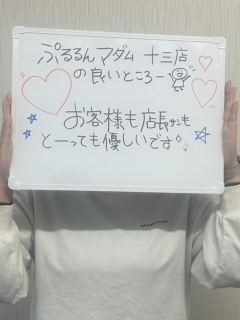 ぷるるんマダム 十三店
の良いところー
お客様も店長サンも
とーっても優しいです。